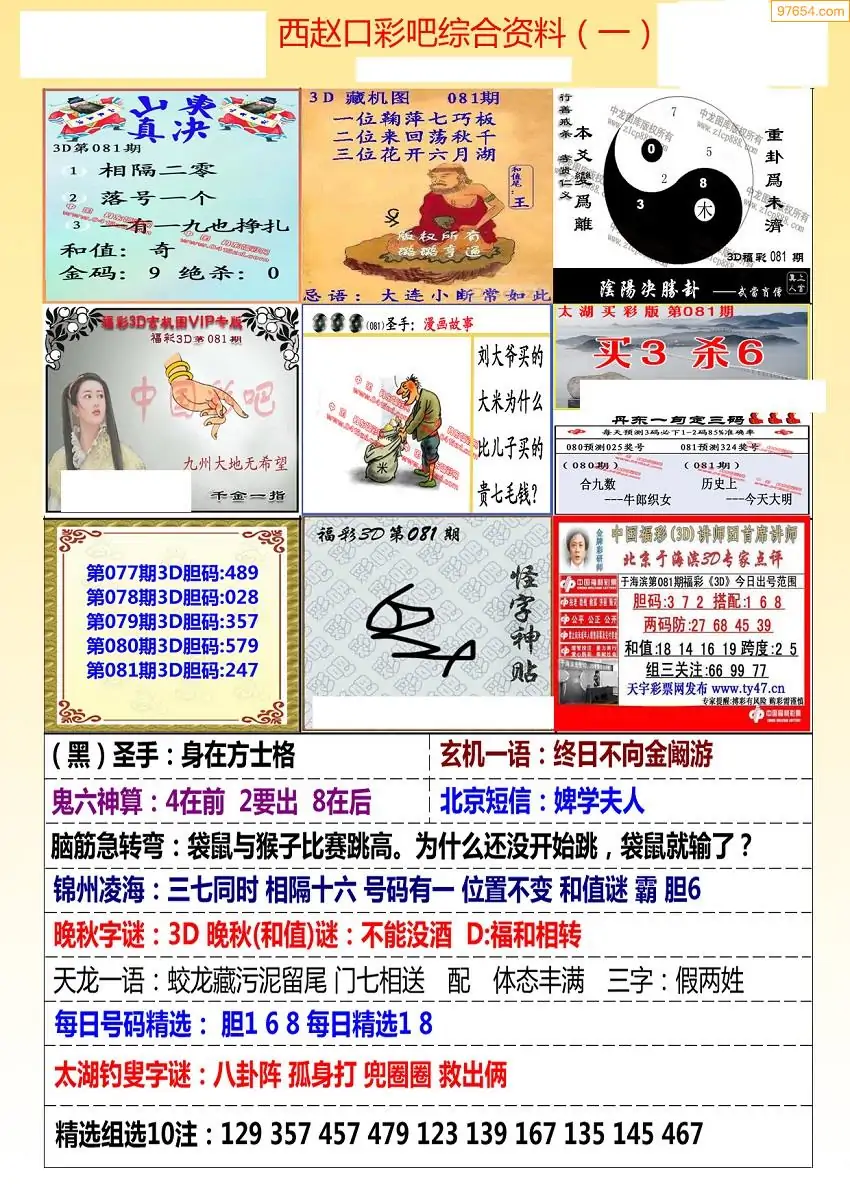 97654.com
西赵口彩吧综合资料（一）
山夷
真决
3D第081期
1 相隔二零
2 落号一个
3 有一九也挣扎
和值：奇
金码：9 绝杀：0
3D 藏机图 081期
一位鞠萍七巧板
二位来回荡秋千
三位花开六月湖
和值尾：王
版权所有
忌语：大连小断常如此
行善戒杀 孝贤仁义
本爻變爲離
重卦爲未濟
中龙图库版权所有
www.zlcp888.com
7
0
5
2
8
3
木
3D福彩 081 期
陰陽決勝卦 ——武當肖僧
福彩3D玄机图VIP专版
福彩3D第081期
中国彩吧
九州大地无希望
千金一指
(081)圣手：漫画故事
刘大爷买的
大米为什么
比儿子买的
贵七毛钱？
米
太湖买彩版 第081期
买3 杀6
丹东一句定三码
每天预测3码必下1-2码85%准确率
080预测025奖号 081预测324奖号
（080期） （081期）
合九数 历史上
---牛郎织女 ---今天大明
第077期3D胆码:489
第078期3D胆码:028
第079期3D胆码:357
第080期3D胆码:579
第081期3D胆码:247
福彩3D第081期
怪字神贴
金牌彩研师
中国福彩(3D)讲师团首席讲师
北京于海滨3D专家点评
中国福利彩票
于海滨第081期福彩《3D》今日出号范围
胆码:3 7 2 搭配:1 6 8
公平 公正 公开
两码防:27 68 45 39
和值:18 14 16 19 跨度:2 5
组三关注:66 99 77
天宇彩票网发布 www.ty47.cn
专家提醒:搏彩有风险 购彩需谨慎
中国福利彩票
（黑）圣手：身在方士格 玄机一语：终日不向金阚游
鬼六神算：4在前 2要出 8在后 北京短信：婢学夫人
脑筋急转弯：袋鼠与猴子比赛跳高。为什么还没开始跳，袋鼠就输了？
锦州凌海：三七同时 相隔十六 号码有一 位置不变 和值谜 霸 胆6
晚秋字谜：3D 晚秋(和值)谜：不能没酒 D:福和相转
天龙一语：蛟龙藏污泥留尾 门七相送 配 体态丰满 三字：假两姓
每日号码精选： 胆1 6 8 每日精选1 8
太湖钓叟字谜：八卦阵 孤身打 兜圈圈 救出俩
精选组选10注：129 357 457 479 123 139 167 135 145 467